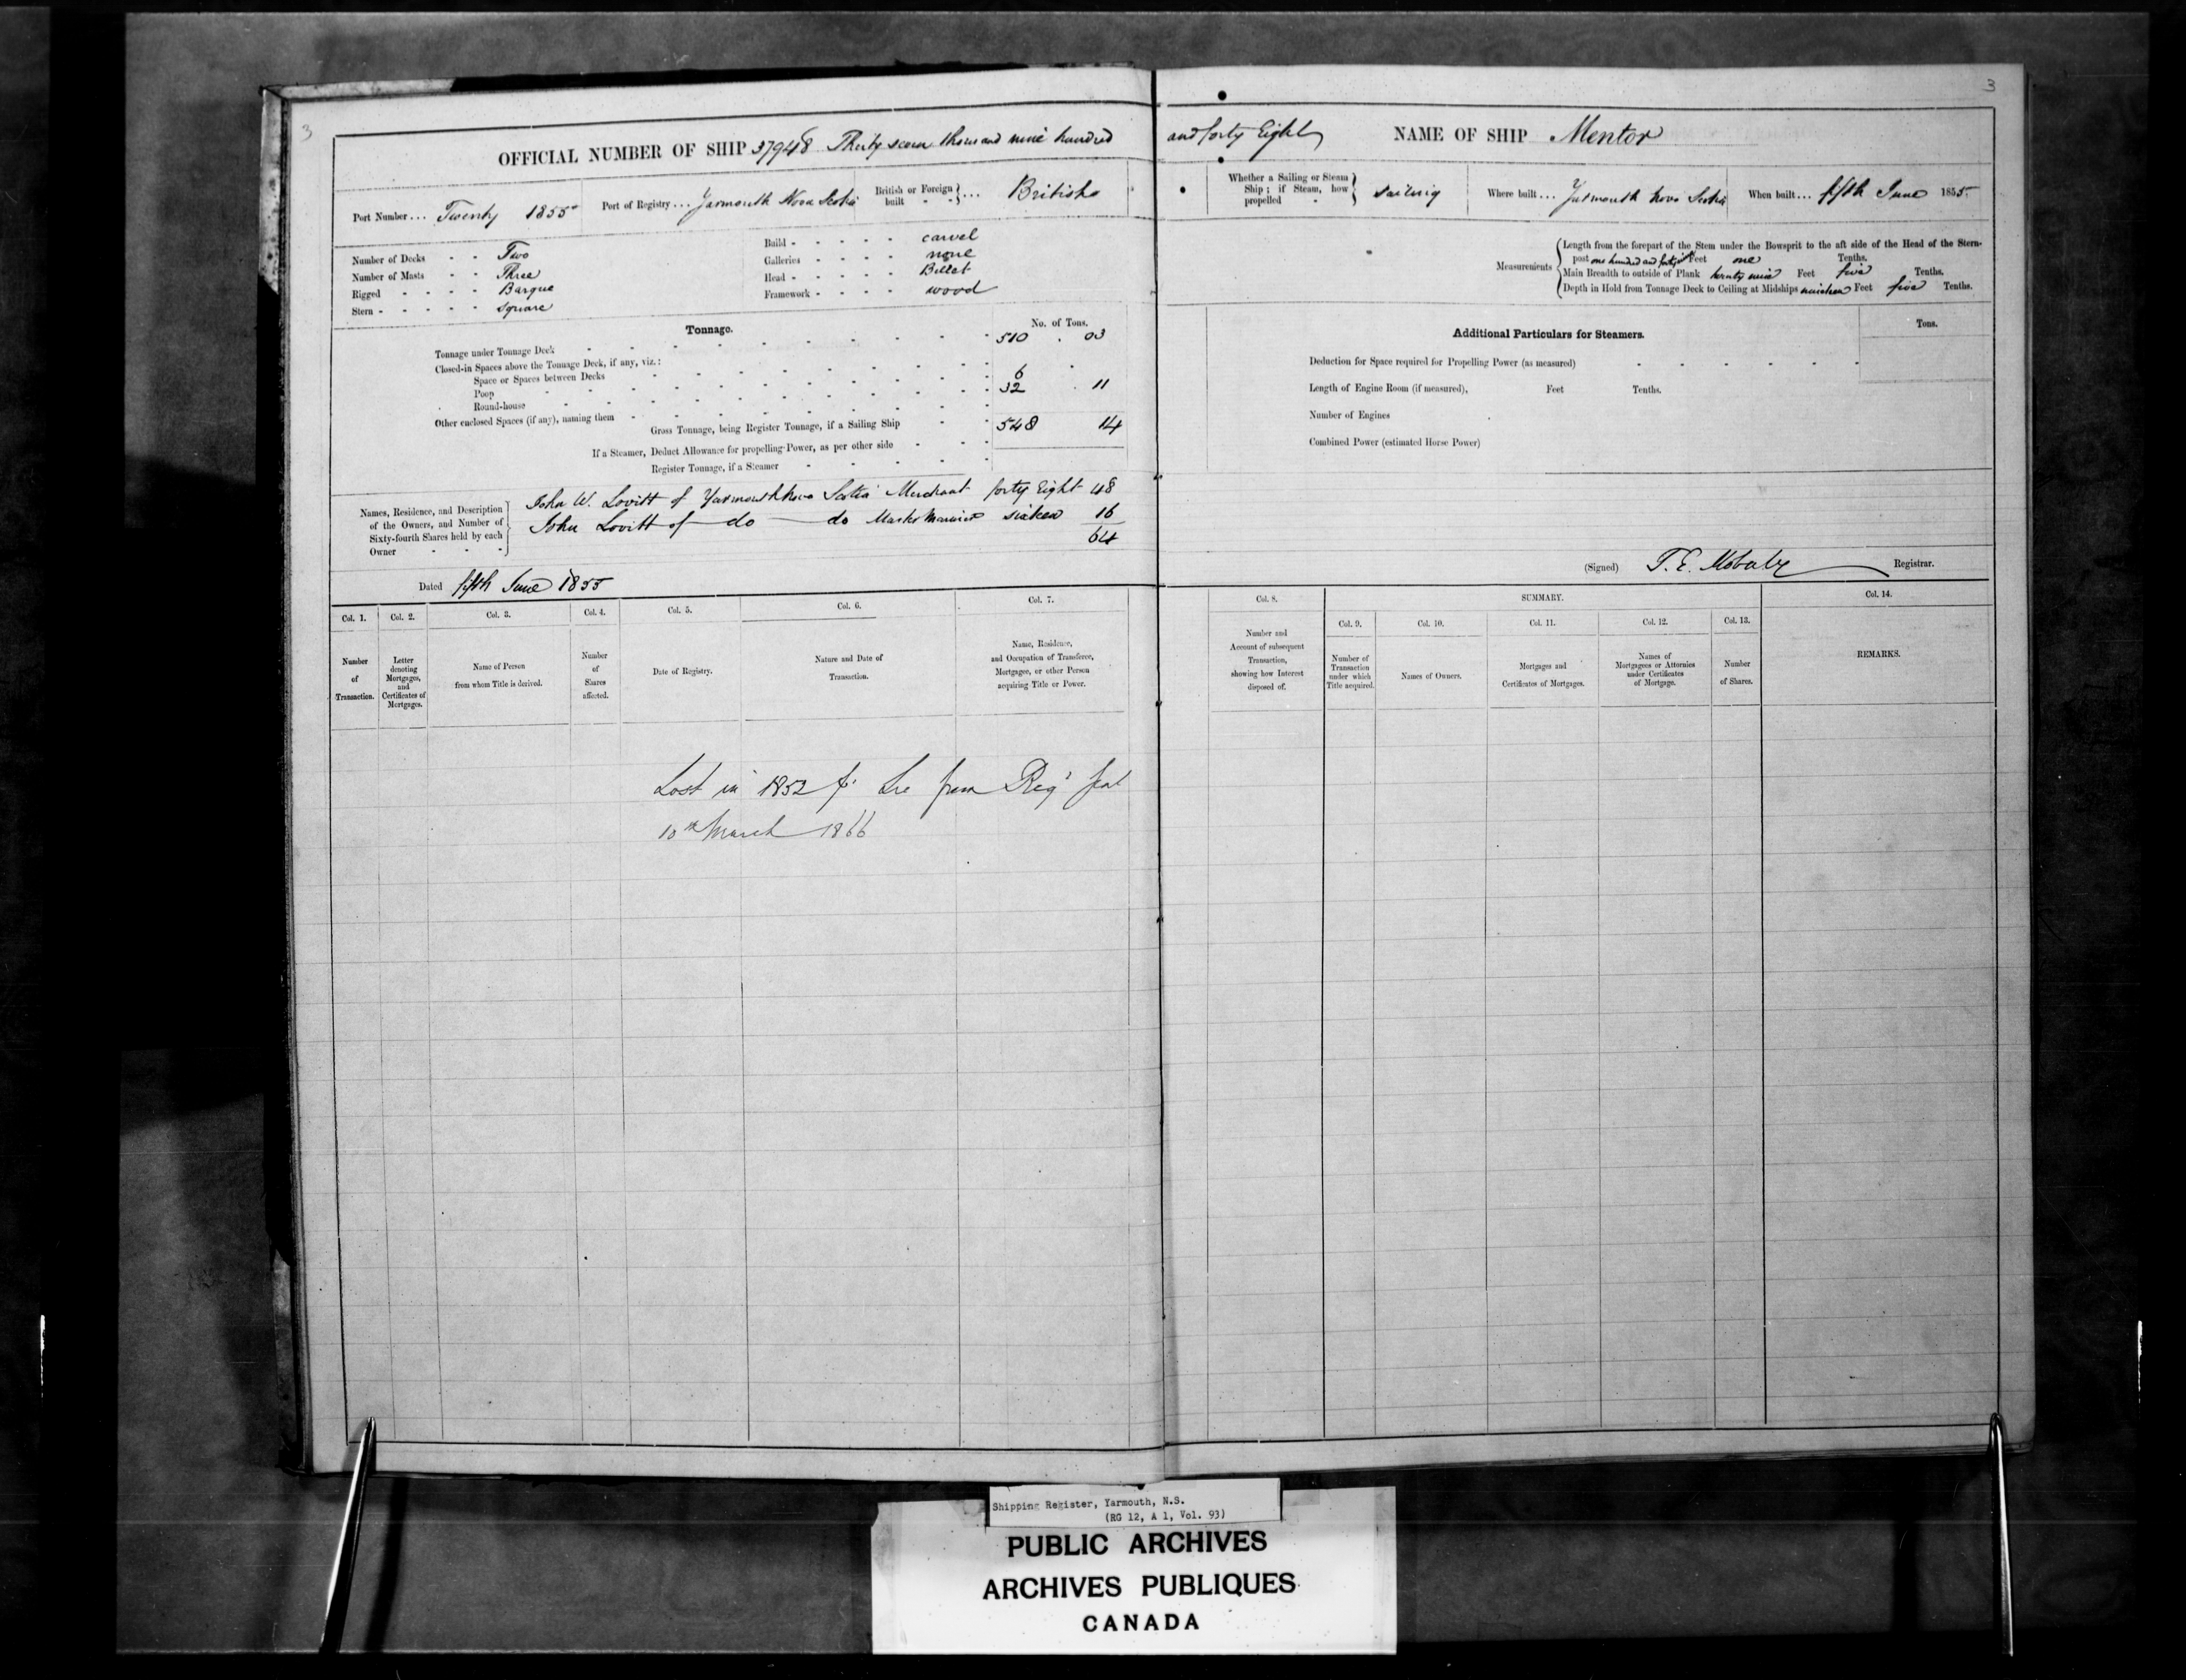 3
3
OFFICIAL NUMBER OF SHIP 37948 Thirty seven thousand nine hundred and forty Eight
NAME OF SHIP Mentor
Port Number ... Twenty 1855
Port of Registry ... Yarmouth Nova Scotia
British or Foreign built } ... British
Whether a Sailing or Steam Ship; if Steam, how propelled } Sailing
Where built ... Yarmouth Nova Scotia
When built ... fifth June 1855
Number of Decks - - Two
Number of Masts - - Three
Rigged - - - - Barque
Stern - - - - - square
Build - - - - - carvel
Galleries - - - - none
Head - - - - - Billet
Framework - - - - wood
Measurements
Length from the forepart of the Stem under the Bowsprit to the aft side of the Head of the Stern-
post one hundred and forty Feet one Tenths.
Main Breadth to outside of Plank twenty nine Feet five Tenths.
Depth in Hold from Tonnage Deck to Ceiling at Midships nineteen Feet five Tenths.
Tonnage.
No. of Tons.
Tonnage under Tonnage Deck 510 . 03
Closed-in Spaces above the Tonnage Deck, if any, viz.:
Space or Spaces between Decks 6
Poop 32 . 11
Round-house
Other enclosed Spaces (if any), naming them
Gross Tonnage, being Register Tonnage, if a Sailing Ship 548 14
If a Steamer, Deduct Allowance for propelling Power, as per other side
Register Tonnage, if a Steamer
Additional Particulars for Steamers.
Tons.
Deduction for Space required for Propelling Power (as measured)
Length of Engine Room (if measured), Feet Tenths.
Number of Engines
Combined Power (estimated Horse Power)
Names, Residence, and Description
of the Owners, and Number of
Sixty-fourth Shares held by each
Owner
John W. Lovitt of Yarmouth Nova Scotia Merchant forty Eight 48
John Lovitt of do do Master Mariner sixteen 16
64
Dated fifth June 1855
(Signed) T. E. Registrar.
Col. 1.
Number
of
Transaction.
Col. 2.
Letter
denoting
Mortgages,
and
Certificates of
Mortgages.
Col. 3.
Name of Person
from whom Title is derived.
Col. 4.
Number
of
Shares
affected.
Col. 5.
Date of Registry.
Col. 6.
Nature and Date of
Transaction.
Col. 7.
Name, Residence,
and Occupation of Transferee,
Mortgagee, or other Person
acquiring Title or Power.
Col. 8.
Number and
Account of subsequent
Transaction,
showing how Interest
disposed of.
SUMMARY.
Col. 9.
Number of
Transaction
under which
Title acquired.
Col. 10.
Names of Owners.
Col. 11.
Mortgages and
Certificates of Mortgages.
Col. 12.
Names of
Mortgagees or Attornies
under Certificates
of Mortgage.
Col. 13.
Number
of Shares.
Col. 14.
REMARKS.
Lost in from Reg
10th March 1866
Shipping Register, Yarmouth, N.S.
(RG 12, A 1, Vol. 93)
PUBLIC ARCHIVES
ARCHIVES PUBLIQUES
CANADA